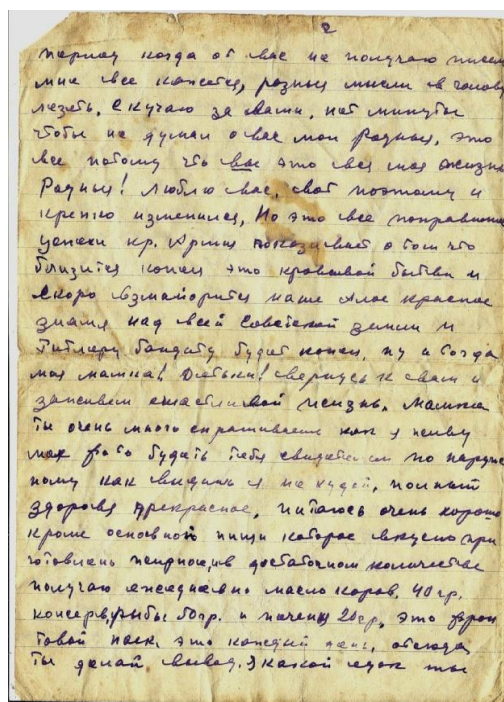 2
период когда от вас не получаю писем
мне все кажется, разные мысли в голову
лезеть. Скучаю за вами, нет минуты
чтобы не думал о вас мои родные, это
все потому что вы это вся моя жизнь
Родные! Люблю вас, вот поэтому и
крепко изменился, Но это все поправимо
успехи кр. Армии показывает о том что
близится конец это кровавой битви и
скоро взмайорится наше Алое красное
знамя над всей Советской земли и
Гитлеру бандиту будет конец, ну и тогда
моя мамка! Детьки! вернусь к вам и
заживем счастливой жизнь. Мамка
ты очень много спрашиваеш как я живу
мое фото будить тебя свидетелем по наруж
ному как видиш я не худой, полный
здоровя прекрасное, питаюсь очень хорошо
кроме основной пищи которое вкусно при
готовлень в достаточном количестве
получаю ежедневно масло коров. 40 гр.
консерв, рыбы 50 гр. и печень 20 гр, это фрон
товой паек это каждый день, отсюда
ты делай вывод. какой ты